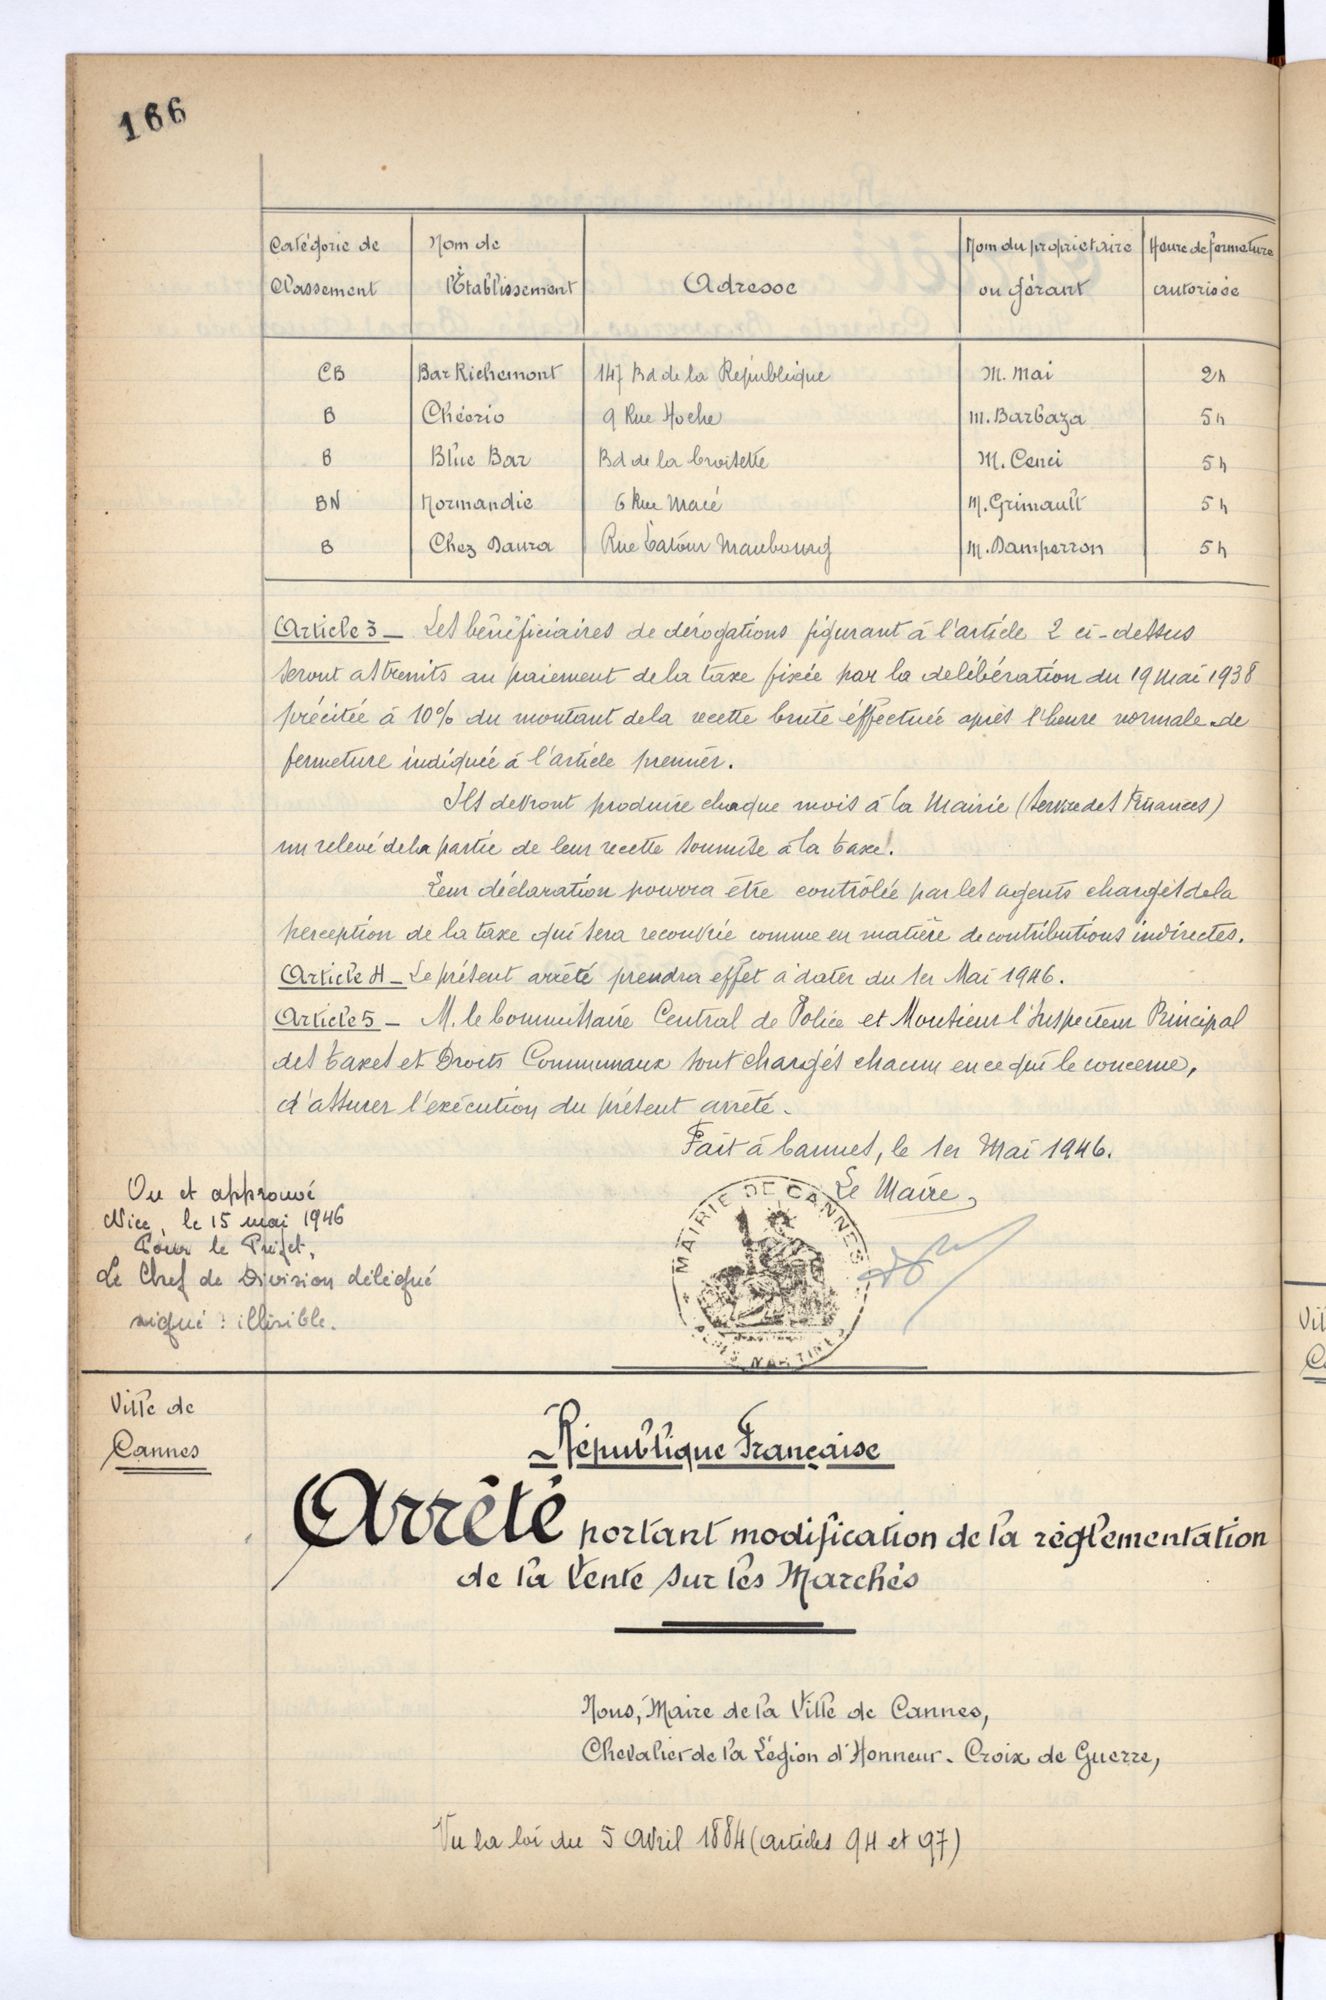 166
Catégorie de Classement | Nom de l'Etablissement | Adresse | Nom du propriétaire ou gérant | Heure de fermeture autorisée
CB | Bar Richemont | 147 Bd de la République | M. Mai | 2h
B | Chéerio | 9 Rue Hoche | M. Barbaza | 5h
B | Blue Bar | Bd de la Croisette | M. Cenci | 5h
BN | Normandie | 6 Rue Macé | M. Grimault | 5h
B | Chez Daura | Rue Latour Maubourg | M. Damperron | 5h
Article 3 _ Les bénéficiaires de dérogations figurant à l'article 2 ci-dessus
seront astreints au paiement de la taxe fixée par la délibération du 19 mai 1938
précitée à 10% du montant de la recette brute éffectuée après l'heure normale de
fermeture indiquée à l'article premier.
Ils devront produire chaque mois à la Mairie (Service des Finances)
un relevé de la partie de leur recette soumise à la taxe.
Leur déclaration pourra être contrôlée par les agents chargés de la
perception de la taxe qui sera recouvrée comme en matière de contributions indirectes.
Article 4 _ Le présent arrêté prendra effet à dater du 1er Mai 1946.
Article 5 _ M. le Commissaire Central de Police et Monsieur l'Inspecteur Principal
des taxes et Droits Communaux sont chargés chacun en ce qui le concerne,
d'assurer l'exécution du présent arrêté.
Fait à Cannes, le 1er Mai 1946.
Le Maire,
Vu et approuvé
Nice, le 15 mai 1946
Pour le Préfet,
Le Chef de Division délégué
signé : illisible.
MAIRIE DE CANNES
Ville de
Cannes
République Française
Arrêté portant modification de la réglementation
de la Vente sur les Marchés
Nous, Maire de la Ville de Cannes,
Chevalier de la Légion d'Honneur. Croix de Guerre,
Vu la loi du 5 Avril 1884 (articles 94 et 97)